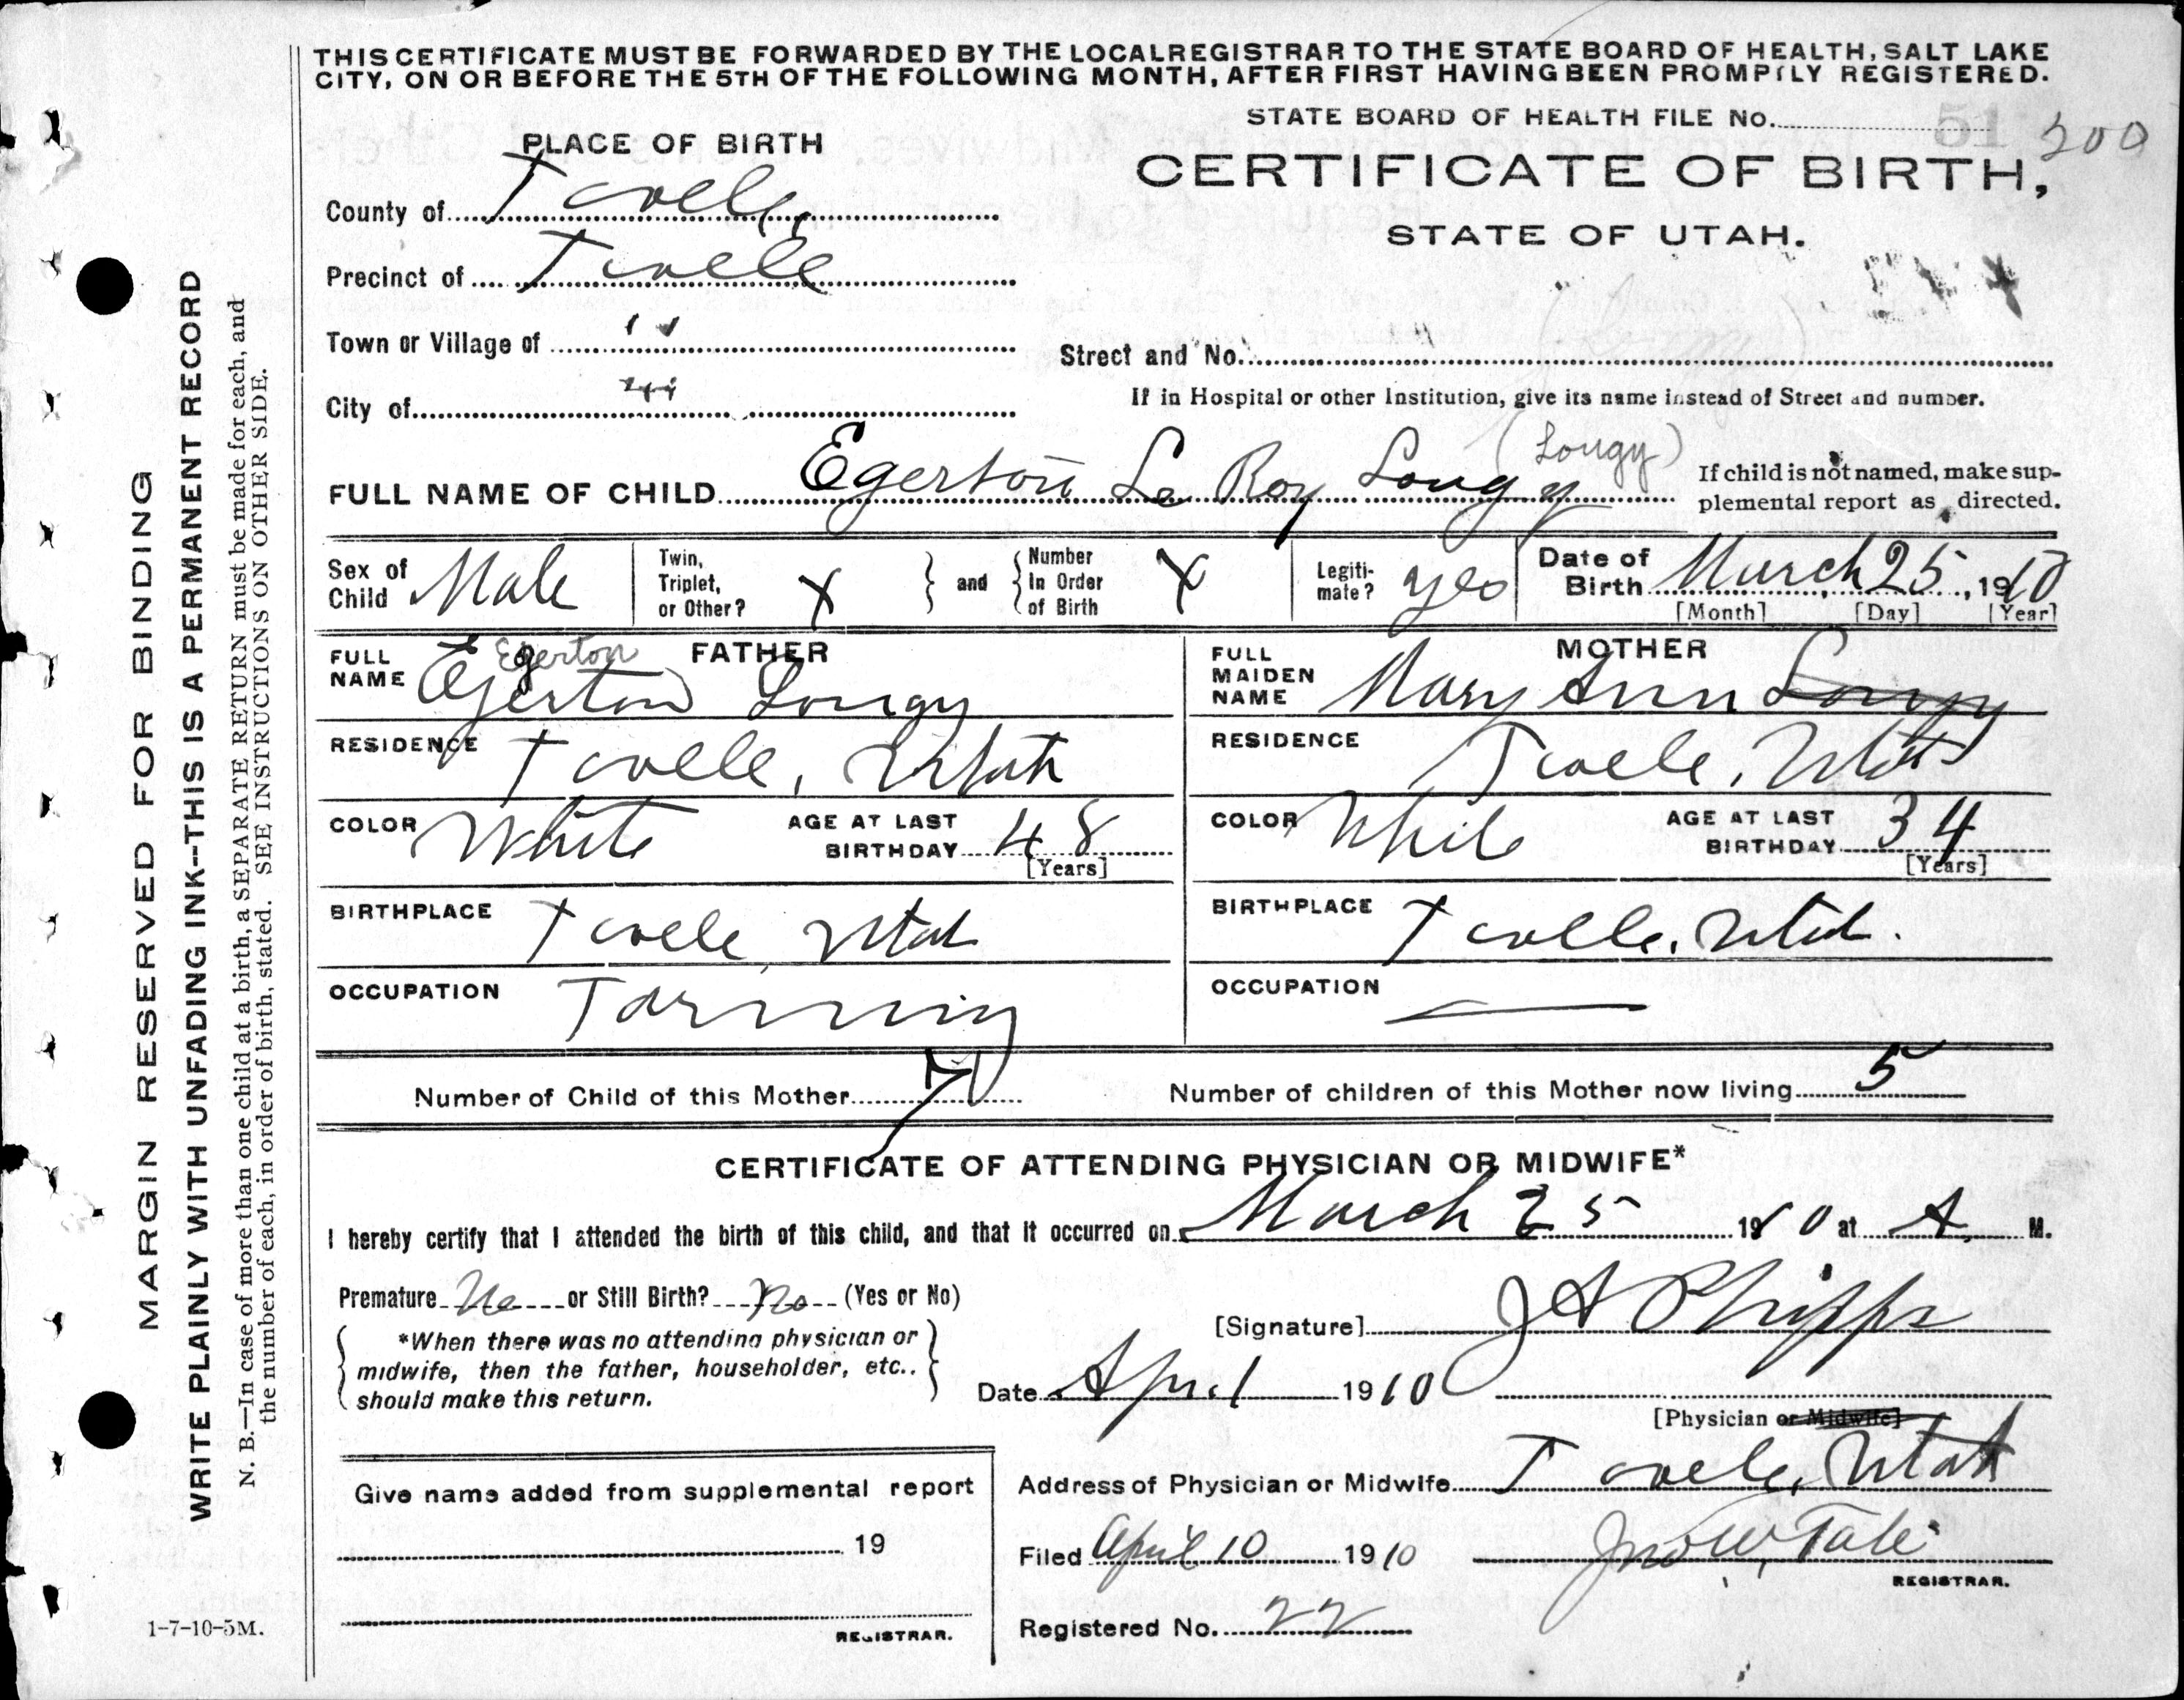 THIS CERTIFICATE MUST BE FORWARDED BY THE LOCAL REGISTRAR TO THE STATE BOARD OF HEALTH, SALT LAKE
CITY, ON OR BEFORE THE 5TH OF THE FOLLOWING MONTH, AFTER FIRST HAVING BEEN PROMPTLY REGISTERED.
STATE BOARD OF HEALTH FILE No. 51 200
PLACE OF BIRTH
CERTIFICATE OF BIRTH,
STATE OF UTAH.
County of Tooele,
Precinct of Tooele
Town or Village of 〃
Street and No.
City of 〃
If in Hospital or other Institution, give its name instead of Street and number.
FULL NAME OF CHILD Egerton Le Roy Lougy (Lougy)
If child is not named, make sup-
plemental report as directed.
Sex of Child Male
Twin, Triplet, or Other? X
and
Number In Order of Birth X
Legiti-mate? yes
Date of Birth March 25, 1910
[Month] [Day] [Year]
FATHER
FULL NAME Egerton Lougy
Egerton
MOTHER
FULL MAIDEN NAME Mary Ann Lougy
RESIDENCE Tooele, Utah
RESIDENCE Tooele, Utah
COLOR White AGE AT LAST BIRTHDAY 48 [Years]
COLOR White AGE AT LAST BIRTHDAY 34 [Years]
BIRTHPLACE Tooele, Utah
BIRTHPLACE Tooele, Utah.
OCCUPATION Farming
OCCUPATION —
Number of Child of this Mother 7
Number of children of this Mother now living 5
CERTIFICATE OF ATTENDING PHYSICIAN OR MIDWIFE*
I hereby certify that I attended the birth of this child, and that it occurred on March 25 1910 at A. M.
Premature No or Still Birth? No (Yes or No)
*When there was no attending physician or
midwife, then the father, householder, etc..
should make this return.
[Signature] J A Phipps
Date April 1910
[Physician or Midwife]
Address of Physician or Midwife Tooele, Utah
Give name added from supplemental report
19
REGISTRAR.
Filed April 10 1910 Jno W. Tate
REGISTRAR.
Registered No. 22
1-7-10-5M.
MARGIN RESERVED FOR BINDING
WRITE PLAINLY WITH UNFADING INK--THIS IS A PERMANENT RECORD
N. B.—In case of more than one child at a birth, a SEPARATE RETURN must be made for each, and
the number of each, in order of birth, stated. SEE INSTRUCTIONS ON OTHER SIDE.